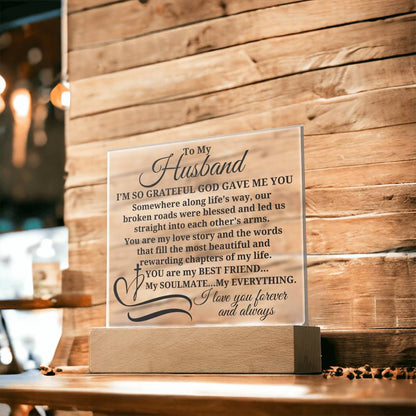 To My
Husband
I'M SO GRATEFUL GOD GAVE ME YOU
Somewhere along life's way, our
broken roads were blessed and led us
straight into each other's arms.
You are my love story and the words
that fill the most beautiful and
rewarding chapters of my life.
YOU are my BEST FRIEND...
My SOULMATE...My EVERYTHING.
I love you forever
and always